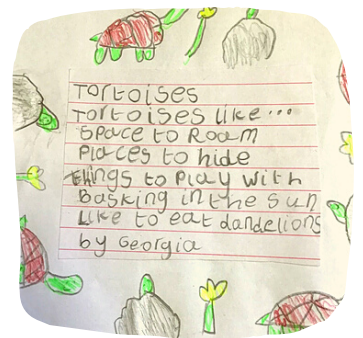 Tortoises
Tortoises like...
Space to Roam
Places to hide
things to Play with
Basking in the sun
Like to eat dandelions
by Georgia